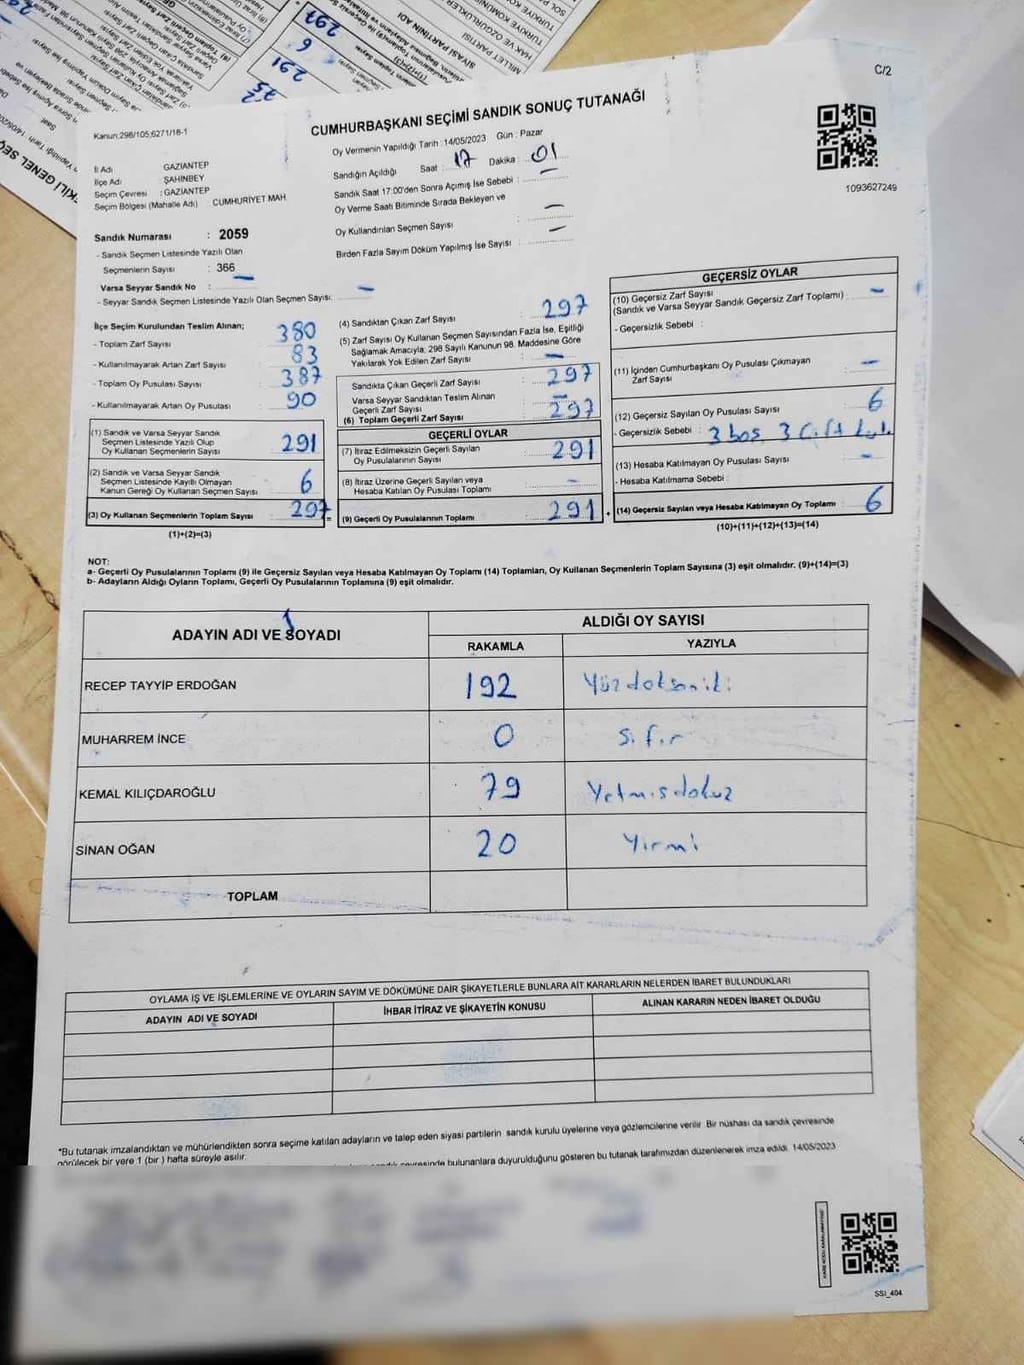 C/2
Kanun:298/105;6271/18-1
CUMHURBAŞKANI SEÇİMİ SANDIK SONUÇ TUTANAĞI
Oy Vermenin Yapıldığı Tarih : 14/05/2023 Gün : Pazar
Sandığın Açıldığı Saat : 17 Dakika : 01
Sandık Saat 17:00'den Sonra Açımış İse Sebebi : —
Oy Verme Saati Bitiminde Sırada Bekleyen ve
Oy Kullandırılan Seçmen Sayısı : —
Birden Fazla Sayım Döküm Yapılmış İse Sayısı : —
1093627249
İl Adı : GAZİANTEP
İlçe Adı : ŞAHİNBEY
Seçim Çevresi : GAZİANTEP
Seçim Bölgesi (Mahalle Adı) CUMHURİYET MAH
Sandık Numarası : 2059
- Sandık Seçmen Listesinde Yazılı Olan
Seçmenlerin Sayısı : 366
Varsa Seyyar Sandık No : —
- Seyyar Sandık Seçmen Listesinde Yazılı Olan Seçmen Sayısı: —
İlçe Seçim Kurulundan Teslim Alınan;
- Toplam Zarf Sayısı : 380
- Kullanılmayarak Artan Zarf Sayısı : 83
- Toplam Oy Pusulası Sayısı : 387
- Kullanılmayarak Artan Oy Pusulası : 90
(1) Sandık ve Varsa Seyyar Sandık
Seçmen Listesinde Yazılı Olup
Oy Kullanan Seçmenlerin Sayısı : 291
(2) Sandık ve Varsa Seyyar Sandık
Seçmen Listesinde Kayıtlı Olmayan
Kanun Gereği Oy Kullanan Seçmen Sayısı : 6
(3) Oy Kullanan Seçmenlerin Toplam Sayısı : 297
(1)+(2)=(3)
(4) Sandıktan Çıkan Zarf Sayısı : 297
(5) Zarf Sayısı Oy Kullanan Seçmen Sayısından Fazla İse, Eşitliği
Sağlamak Amacıyla; 298 Sayılı Kanunun 98. Maddesine Göre
Yakılarak Yok Edilen Zarf Sayısı : —
Sandıkta Çıkan Geçerli Zarf Sayısı : 297
Varsa Seyyar Sandıktan Teslim Alınan
Geçerli Zarf Sayısı : —
(6) Toplam Geçerli Zarf Sayısı : 297
GEÇERLİ OYLAR
(7) İtiraz Edilmeksizin Geçerli Sayılan
Oy Pusulalarının Sayısı : 291
(8) İtiraz Üzerine Geçerli Sayılan veya
Hesaba Katılan Oy Pusulası Toplamı : —
(9) Geçerli Oy Pusulalarının Toplamı : 291
GEÇERSİZ OYLAR
(10) Geçersiz Zarf Sayısı
(Sandık ve Varsa Seyyar Sandık Geçersiz Zarf Toplamı) : —
- Geçersizlik Sebebi :
(11) İçinden Cumhurbaşkanı Oy Pusulası Çıkmayan
Zarf Sayısı : —
(12) Geçersiz Sayılan Oy Pusulası Sayısı : 6
- Geçersizlik Sebebi : 3 boş 3 çift
(13) Hesaba Katılmayan Oy Pusulası Sayısı : —
- Hesaba Katılmama Sebebi :
(14) Geçersiz Sayılan veya Hesaba Katılmayan Oy Toplamı : 6
(10)+(11)+(12)+(13)=(14)
NOT:
a- Geçerli Oy Pusulalarının Toplamı (9) ile Geçersiz Sayılan veya Hesaba Katılmayan Oy Toplamı (14) Toplamları, Oy Kullanan Seçmenlerin Toplam Sayısına (3) eşit olmalıdır. (9)+(14)=(3)
b- Adayların Aldığı Oyların Toplamı, Geçerli Oy Pusulalarının Toplamına (9) eşit olmalıdır.
ADAYIN ADI VE SOYADI ALDIĞI OY SAYISI
RAKAMLA YAZIYLA
RECEP TAYYİP ERDOĞAN 192 Yüzdoksaniki
MUHARREM İNCE 0 Sıfır
KEMAL KILIÇDAROĞLU 79 Yetmişdokuz
SİNAN OĞAN 20 Yirmi
TOPLAM
OYLAMA İŞ VE İŞLEMLERİNE VE OYLARIN SAYIM VE DÖKÜMÜNE DAİR ŞİKAYETLERLE BUNLARA AİT KARARLARIN NELERDEN İBARET BULUNDUKLARI
ADAYIN ADI VE SOYADI İHBAR İTİRAZ VE ŞİKAYETİN KONUSU ALINAN KARARIN NEDEN İBARET OLDUĞU
*Bu tutanak imzalandıktan ve mühürlendikten sonra seçime katılan adayların ve talep eden siyasi partilerin sandık kurulu üyelerine veya gözlemcilerine verilir. Bir nüshası da sandık çevresinde
görülecek bir yere 1 (bir ) hafta süreyle asılır.
bulunanlara duyurulduğunu gösteren bu tutanak tarafımızdan düzenlenerek imza edildi. 14/05/2023
SSI_404